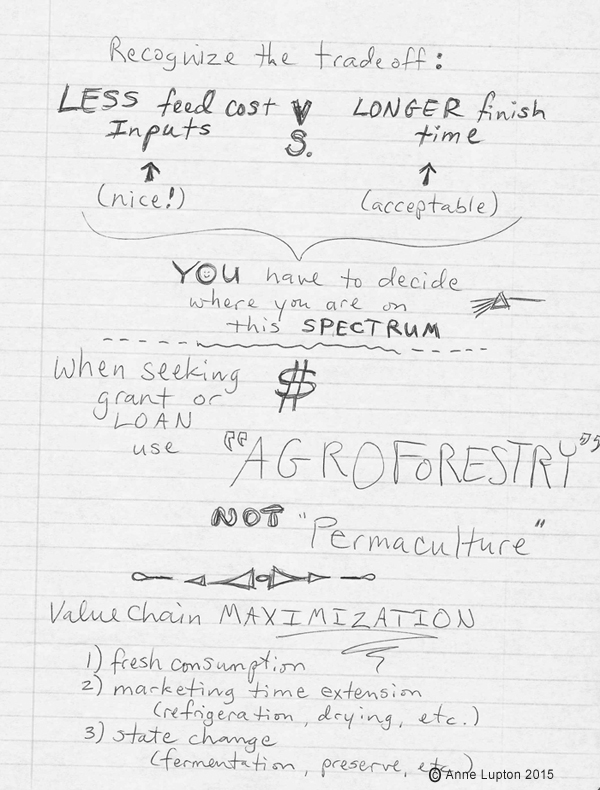 Recognize the tradeoff:
LESS feed cost VS. LONGER finish
Inputs time
(nice!) (acceptable)
YOU have to decide
where you are on
this SPECTRUM
When seeking $
grant or
LOAN
use "AGROFORESTRY"
NOT "Permaculture"
Value Chain MAXIMIZATION
1) fresh consumption
2) marketing time extension
(refrigeration, drying, etc.)
3) state change
(fermentation, preserve, etc.)
© Anne Lupton 2015